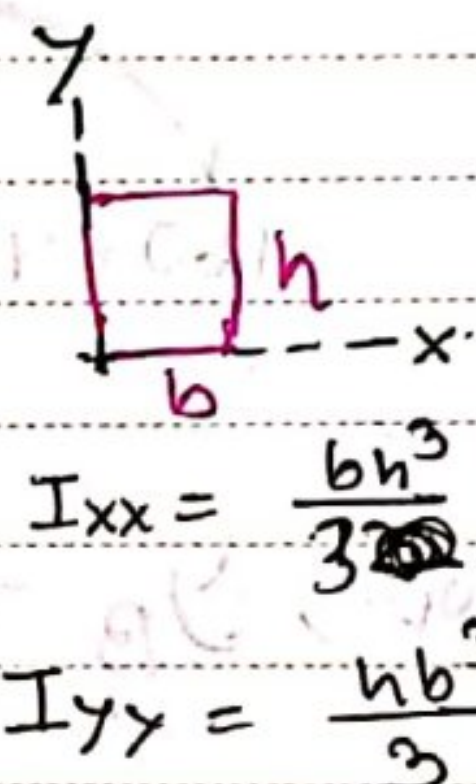 y
h
x
b
Ixx = bh³/3
Iyy = hb/3